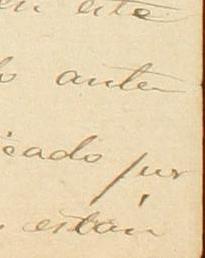 en este
o ante
icado por
están